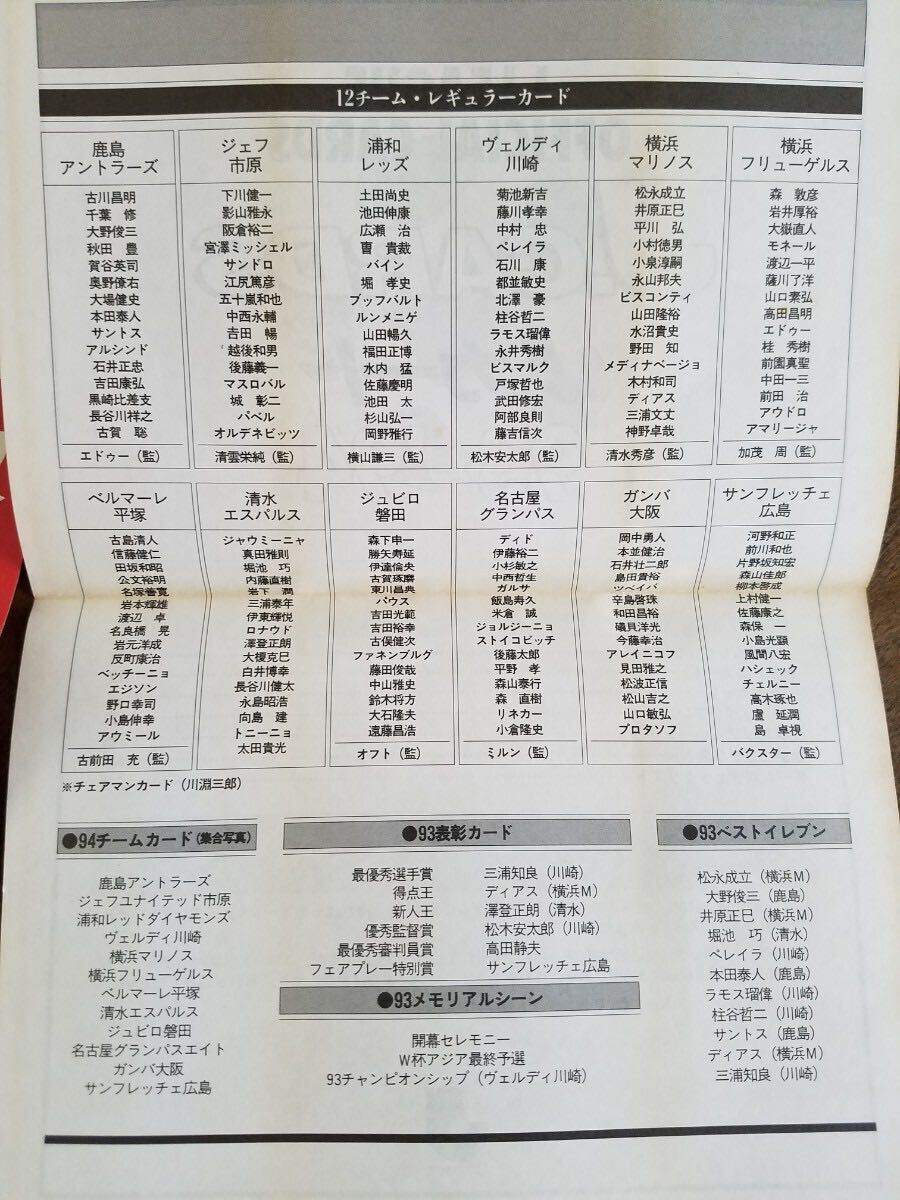 12チーム・レギュラーカード
鹿島
アントラーズ
古川昌明
千葉 修
大野俊三
秋田 豊
賀谷英司
奥野僚右
大場健史
本田泰人
サントス
アルシンド
石井正忠
吉田康弘
黒崎比差支
長谷川祥之
古賀 聡
エドゥー（監）
ジェフ
市原
下川健一
影山雅永
阪倉裕二
宮澤ミッシェル
サンドロ
江尻篤彦
五十嵐和也
中西永輔
吉田 暢
越後和男
後藤義一
マスロバル
城 彰二
パベル
オルデネビッツ
清雲栄純（監）
浦和
レッズ
土田尚史
池田伸康
広瀬 治
曺 貴裁
バイン
堀 孝史
ブッフバルト
ルンメニゲ
山田暢久
福田正博
水内 猛
佐藤慶明
池田 太
杉山弘一
岡野雅行
横山謙三（監）
ヴェルディ
川崎
菊池新吉
藤川孝幸
中村 忠
ペレイラ
石川 康
都並敏史
北澤 豪
柱谷哲二
ラモス瑠偉
永井秀樹
ビスマルク
戸塚哲也
武田修宏
阿部良則
藤吉信次
松木安太郎（監）
横浜
マリノス
松永成立
井原正巳
平川 弘
小村徳男
小泉淳嗣
永山邦夫
ビスコンティ
山田隆裕
水沼貴史
野田 知
メディナベージョ
木村和司
ディアス
三浦文丈
神野卓哉
清水秀彦（監）
横浜
フリューゲルス
森 敦彦
岩井厚裕
大嶽直人
モネール
渡辺一平
薩川了洋
山口素弘
高田昌明
エドゥー
桂 秀樹
前園真聖
中田一三
前田 治
アウドロ
アマリージャ
加茂 周（監）
ベルマーレ
平塚
古島清人
信藤健仁
田坂和昭
公文裕明
名塚善寛
岩本輝雄
渡辺 卓
名良橋 晃
岩元洋成
反町康治
ベッチーニョ
エジソン
野口幸司
小島伸幸
アウミール
古前田 充（監）
清水
エスパルス
ジャウミーニャ
真田雅則
堀池 巧
内藤直樹
岩下 潤
三浦泰年
伊東輝悦
ロナウド
澤登正朗
大榎克巳
白井博幸
長谷川健太
永島昭浩
向島 建
トニーニョ
太田貴光
ジュビロ
磐田
森下申一
勝矢寿延
伊達倫央
古賀琢磨
東川昌典
パウス
吉田光範
吉田裕幸
古俣健次
ファネンブルグ
藤田俊哉
中山雅史
鈴木将方
大石隆夫
遠藤昌浩
オフト（監）
名古屋
グランパス
ディド
伊藤裕二
小杉敏之
中西哲生
ガルサ
飯島寿久
米倉 誠
ジョルジーニョ
ストイコビッチ
後藤太郎
平野 孝
森山泰行
森 直樹
リネカー
小倉隆史
ミルン（監）
ガンバ
大阪
岡中勇人
本並健治
石井壮二郎
島田貴裕
ツベイバ
辛島啓珠
和田昌裕
礒貝洋光
今藤幸治
アレイニコフ
見田雅之
松波正信
松山吉之
山口敏弘
プロタソフ
サンフレッチェ
広島
河野和正
前川和也
片野坂知宏
森山佳郎
柳本啓成
上村健一
佐藤康之
森保 一
小島光顕
風間八宏
ハシェック
チェルニー
高木琢也
盧 延潤
島 卓視
バクスター（監）
※チェアマンカード（川淵三郎）
●94チームカード（集合写真）
鹿島アントラーズ
ジェフユナイテッド市原
浦和レッドダイヤモンズ
ヴェルディ川崎
横浜マリノス
横浜フリューゲルス
ベルマーレ平塚
清水エスパルス
ジュビロ磐田
名古屋グランパスエイト
ガンバ大阪
サンフレッチェ広島
●93表彰カード
最優秀選手賞 三浦知良（川崎）
得点王 ディアス（横浜M）
新人王 澤登正朗（清水）
優秀監督賞 松木安太郎（川崎）
最優秀審判員賞 高田静夫
フェアプレー特別賞 サンフレッチェ広島
●93メモリアルシーン
開幕セレモニー
W杯アジア最終予選
93チャンピオンシップ（ヴェルディ川崎）
●93ベストイレブン
松永成立（横浜M）
大野俊三（鹿島）
井原正巳（横浜M）
堀池 巧（清水）
ペレイラ（川崎）
本田泰人（鹿島）
ラモス瑠偉（川崎）
柱谷哲二（川崎）
サントス（鹿島）
ディアス（横浜M）
三浦知良（川崎）